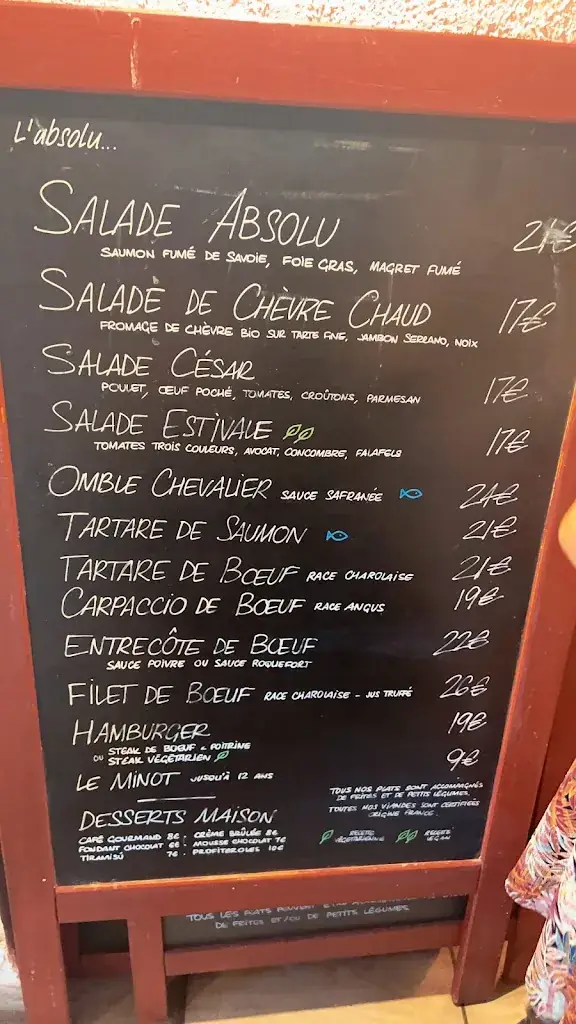 L'absolu...
SALADE ABSOLU 21€
SAUMON FUMÉ DE SAVOIE, FOIE GRAS, MAGRET FUMÉ
SALADE DE CHÈVRE CHAUD 17€
FROMAGE DE CHÈVRE BIO SUR TARTE FINE, JAMBON SERRANO, NOIX
SALADE CÉSAR 17€
POULET, ŒUF POCHÉ, TOMATES, CROÛTONS, PARMESAN
SALADE ESTIVALE 17€
TOMATES TROIS COULEURS, AVOCAT, CONCOMBRE, FALAFELS
OMBLE CHEVALIER SAUCE SAFRANÉE 24€
TARTARE DE SAUMON 21€
TARTARE DE BŒUF RACE CHAROLAISE 21€
CARPACCIO DE BŒUF RACE ANGUS 19€
ENTRECÔTE DE BŒUF 22€
SAUCE POIVRE OU SAUCE ROQUEFORT
FILET DE BŒUF RACE CHAROLAISE - JUS TRUFFÉ 26€
HAMBURGER 19€
STEAK DE BŒUF & POITRINE
OU STEAK VÉGÉTARIEN
LE MINOT JUSQU'À 12 ANS 9€
TOUS NOS PLATS SONT ACCOMPAGNÉS
DE FRITES ET DE PETITS LÉGUMES.
TOUTES NOS VIANDES SONT CERTIFIÉES
ORIGINE FRANCE.
DESSERTS MAISON
CAFÉ GOURMAND 8€ . CRÈME BRÛLÉE 8€
FONDANT CHOCOLAT 6€ . MOUSSE CHOCOLAT 7€
TIRAMISÚ 7€ . PROFITEROLES 10€
RECETTE VÉGÉTARIENNE
RECETTE VEGAN
TOUS LES PLATS PEUVENT ÊTRE
DE FRITES ET/OU DE PETITS LÉGUMES.